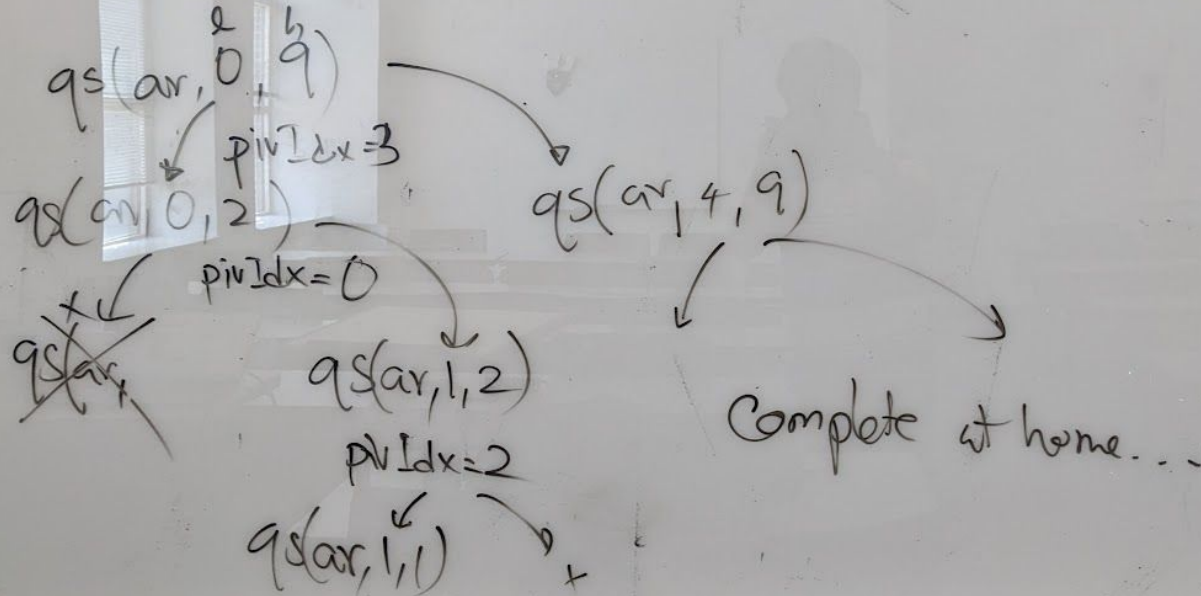 l h
qs(ar, 0, 9)
pivIdx=3
qs(ar, 0, 2)
qs(ar, 4, 9)
pivIdx=0
x
qs(ar,
qs(ar,1,2)
Complete at home....
pivIdx=2
qs(ar,1,1)
x